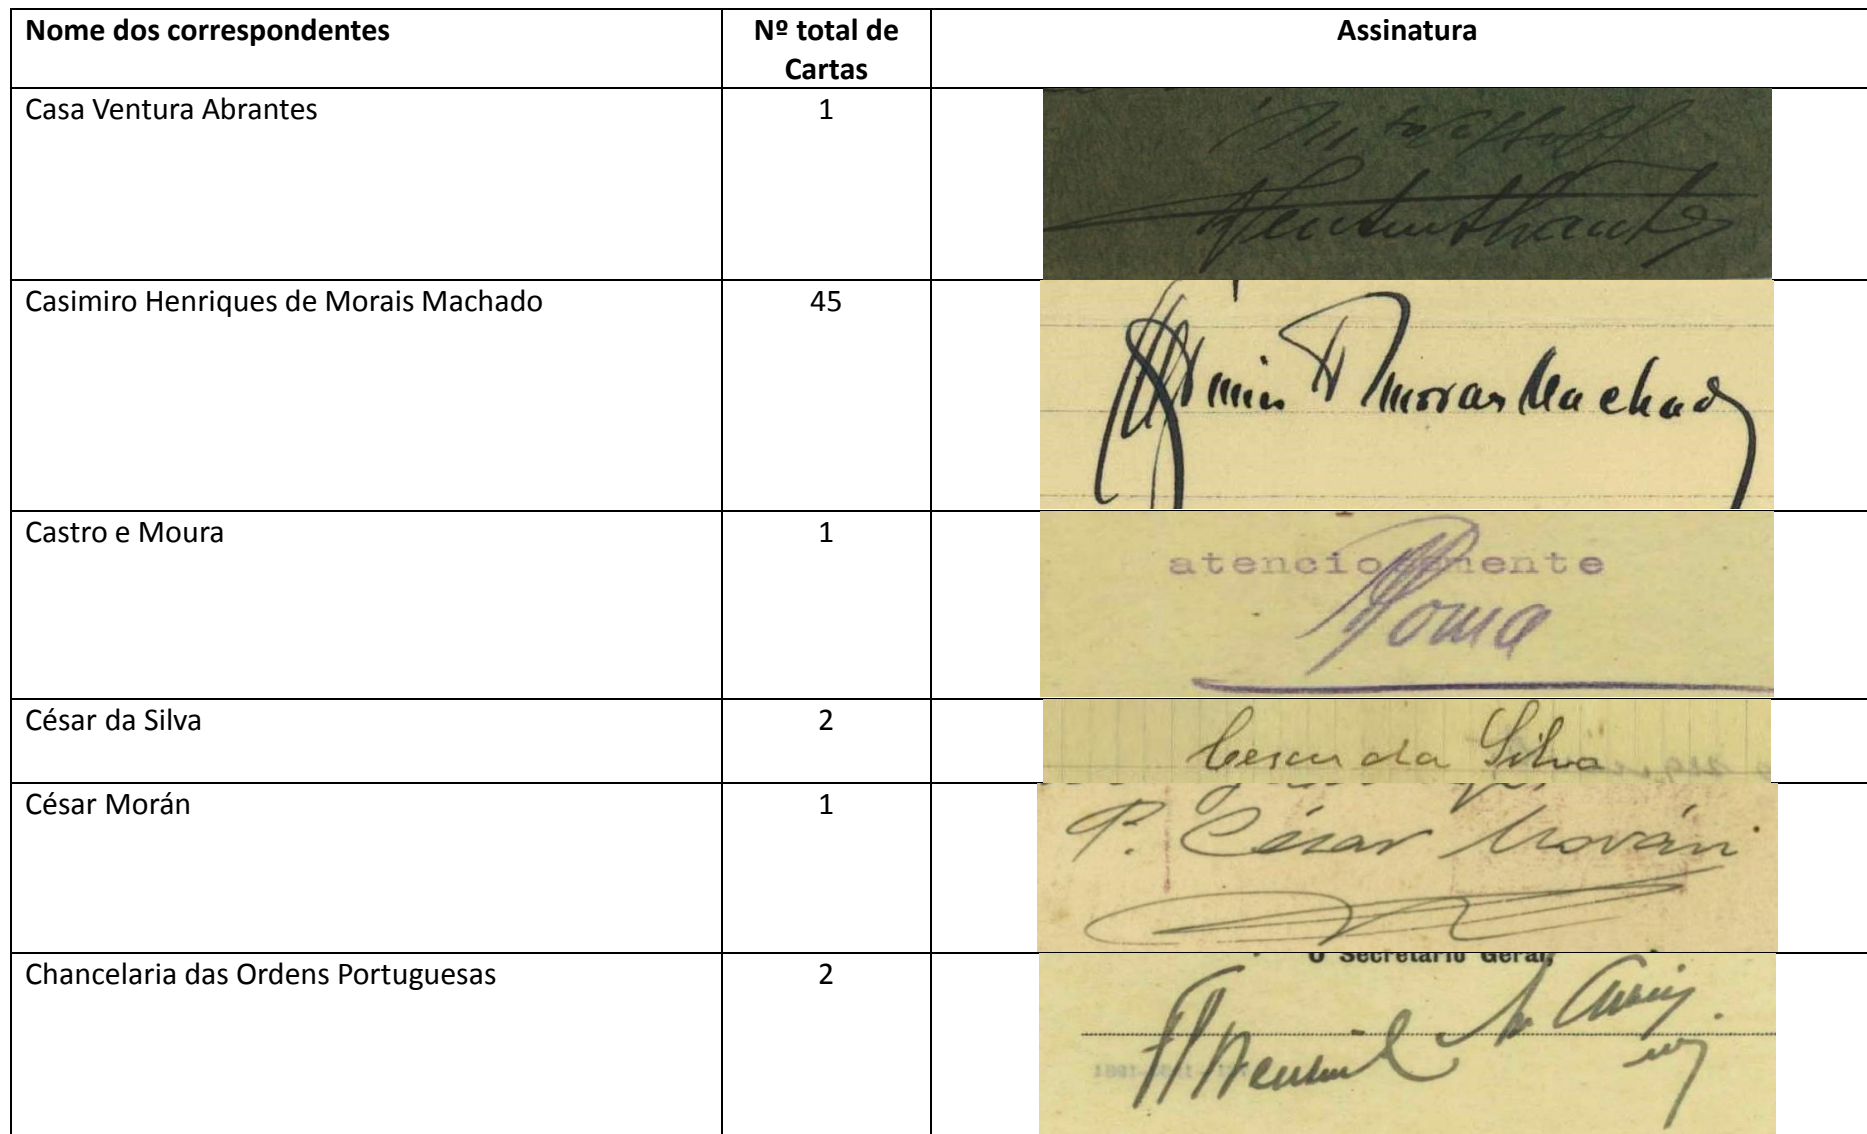 Nome dos correspondentes
Nº total de
Cartas
Assinatura
Casa Ventura Abrantes
1
Casimiro Henriques de Morais Machado
45
Morais Machado
Castro e Moura
1
atenciosamente
César da Silva
2
Cesar da Silva
César Morán
1
P. César Morán
Chancelaria das Ordens Portuguesas
2
O Secretário Geral,